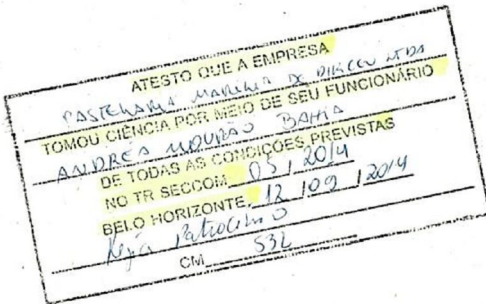 ATESTO QUE A EMPRESA
PASTELARIA MARILIA DE DIRCEU LTDA
TOMOU CIÊNCIA POR MEIO DE SEU FUNCIONÁRIO
ANDRÉA MOURÃO BAHIA
DE TODAS AS CONDIÇÕES PREVISTAS
NO TR SECCOM 05 / 2014
BELO HORIZONTE, 12 / 09 / 2014
Patrocínio
CM 532